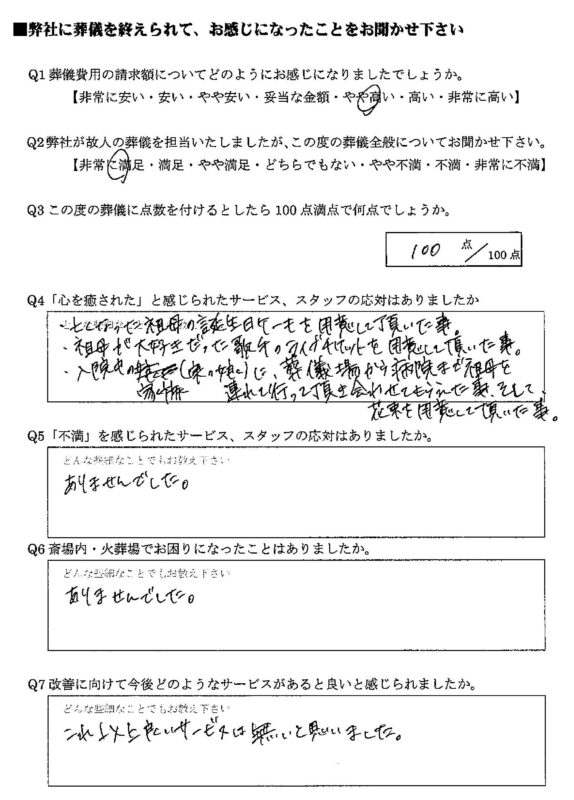 ■弊社に葬儀を終えられて、お感じになったことをお聞かせ下さい
Q1 葬儀費用の請求額についてどのようにお感じになりましたでしょうか。
【非常に安い・安い・やや安い・妥当な金額・やや高い・高い・非常に高い】
Q2 弊社が故人の葬儀を担当いたしましたが、この度の葬儀全般についてお聞かせ下さい。
【非常に満足・満足・やや満足・どちらでもない・やや不満・不満・非常に不満】
Q3 この度の葬儀に点数を付けるとしたら 100 点満点で何点でしょうか。
100 点/100点
Q4「心を癒された」と感じられたサービス、スタッフの応対はありましたか
・亡くなった祖母の誕生日ケーキを用意して頂いた事。
・祖母が大好きだった歌手のライブチケットを用意して頂いた事。
・入院中の(娘)に、葬儀場から病院まで祖母を
連れて行って頂き会わせてもらえた事、そして、
花束を用意して頂いた事。
Q5「不満」を感じられたサービス、スタッフの応対はありましたか。
どんな些細なことでもお教え下さい
ありませんでした。
Q6 斎場内・火葬場でお困りになったことはありましたか。
どんな些細なことでもお教え下さい
ありませんでした。
Q7 改善に向けて今後どのようなサービスがあると良いと感じられましたか。
どんな些細なことでもお教え下さい
これ以上良いサービスは無いと思いました。